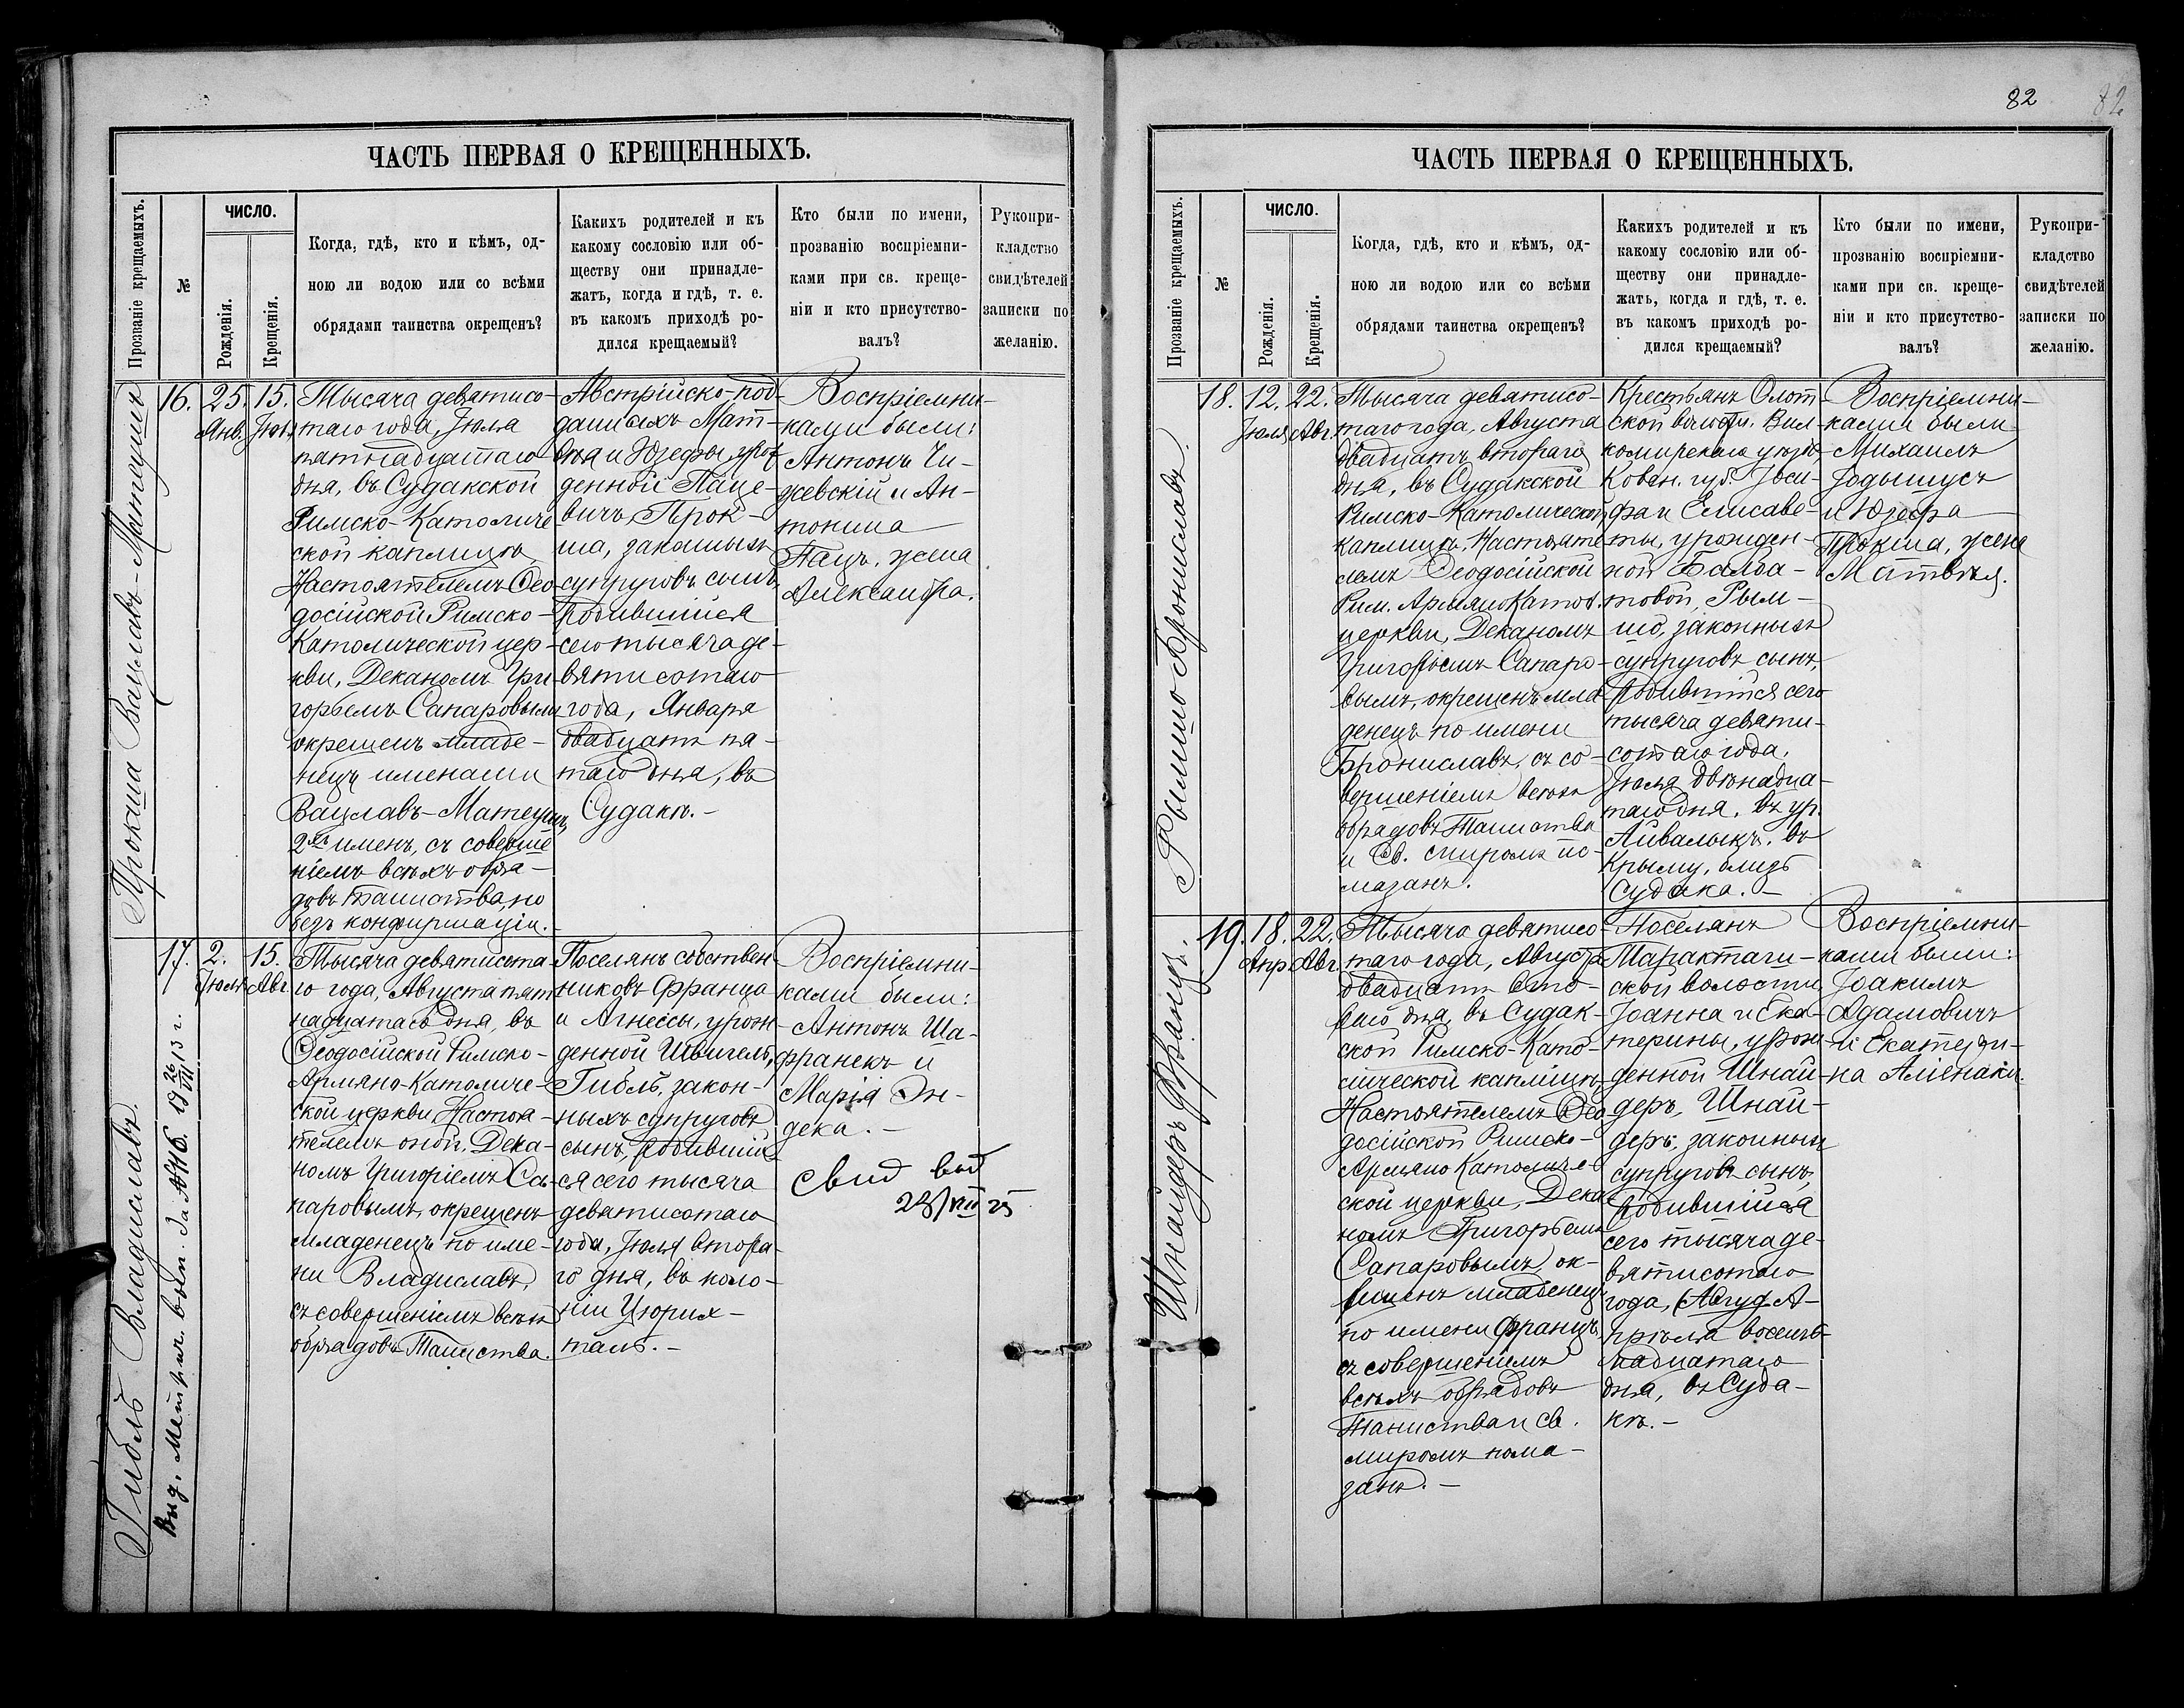 ЧАСТЬ ПЕРВАЯ О КРЕЩЕННЫХЪ.
Прозваніе крещаемыхъ.
№
ЧИСЛО.
Рожденія.
Крещенія.
Когда, гдѣ, кто и кѣмъ, од-
ною ли водою или со всѣми
обрядами таинства окрещенъ?
Какихъ родителей и къ
какому сословію или об-
ществу они принадле-
жатъ, когда и гдѣ, т. е.
въ какомъ приходѣ ро-
дился крещаемый?
Кто были по имени,
прозванію воспріемни-
ками при св. креще-
ніи и кто присутство-
валъ?
Рукопри-
кладство
свидѣтелей
записки по
желанію.
Прокша Вацлавъ-Матеушъ
16.
25.
Янв.
15.
Іюл.
Тысяча девятисо-
таго года, Іюля
пятнадцатаго
дня, въ Судакской
Римско-Католиче
ской каплицѣ
Настоятелемъ Ѳео
досійской Римско-
Католической цер-
кви, Деканомъ Гри
горьемъ Сапаровымъ
окрещенъ младе-
нецъ именами
Вацлавъ-Матеушъ
2хъ именъ, съ соверше
ніемъ всѣхъ обря-
довъ таинства, но
безъ конфирмаціи.
Австрійско-под-
данныхъ Мат-
вѣя и Юзефы, урож
денной Паце-
вичъ, Прок-
ша, законныхъ
супруговъ сынъ,
родившійся
сего тысяча де-
вятисотаго
года, Января
двадцать пя-
таго дня, въ
Судакѣ.-
Воспріемни-
ками были:
Антонъ Чи-
жевскій и Ан-
тонина
Пацъ, жена
Александра.
Гибль Владиславъ.
Выд. Метрич. вып. за № 46. 19 26/VII 13 г.
17.
2.
Іюля
15.
Авг
Тысяча девятисота
го года, Августа пят
надцатаго дня, въ
Ѳеодосійской Римско-
Армяно-Католиче-
ской церкви Настоя-
телемъ оной, Дека-
номъ Григоріемъ Са-
паровымъ, окрещенъ
младенецъ по име-
ни Владиславъ,
съ совершеніемъ всѣхъ
обрядовъ Таинства.
Поселянъ собствен
никовъ Франца
и Агнессы, урож
денной Швигель,
Гибль, закон-
ныхъ супруговъ
сынъ, родившій
ся сего тысяча
девятисотаго
года, Іюля второ-
го дня, въ коло-
ніи Цюрих-
таль.-
Воспріемни-
ками были:
Антонъ Ша-
франекъ и
Марія Эн-
дека.-
Свид выд
28/VII 25
82
82
ЧАСТЬ ПЕРВАЯ О КРЕЩЕННЫХЪ.
Прозваніе крещаемыхъ.
№
ЧИСЛО.
Рожденія.
Крещенія.
Когда, гдѣ, кто и кѣмъ, од-
ною ли водою или со всѣми
обрядами таинства окрещенъ?
Какихъ родителей и къ
какому сословію или об-
ществу они принадле-
жатъ, когда и гдѣ, т. е.
въ какомъ приходѣ ро-
дился крещаемый?
Кто были по имени,
прозванію воспріемни-
ками при св. креще-
ніи и кто присутство-
валъ?
Рукопри-
кладство
свидѣтелей
записки по
желанію.
Рымшо Брониславъ.
18.
12.
Іюля
22.
Авг.
Тысяча девятисо-
таго года, Августа
двадцать втораго
дня, въ Судакской
Римско-Католической
каплицѣ, Настояте
лемъ Ѳеодосійской
Рим. Армяно Катол.
церкви, Деканомъ
Григорьемъ Сапаро-
вымъ, окрещенъ мла
денецъ по имени
Брониславъ, съ со-
вершеніемъ всѣхъ
обрядовъ Таинства
и Св. миромъ по-
мазанъ.
Крестьянъ
ской волости. Вил
комирскаго уѣзда,
Ковен. губ. Іоси-
фа и Елисаве-
ты, урожден-
ной
Рым-
шо, законныхъ
супруговъ сынъ,
родившійся сего
тысяча девяти-
сотаго года,
Іюля двѣнадца-
таго дня, въ ур.
Айвалыкъ, въ
Крыму, близъ
Судака.-
Воспріемни-
ками были
Михаилъ
Іодышусъ
и Юзефа
Прокша, жена
Матвѣя.
Шнайдеръ Францъ.
19.
18.
Апр
22.
Авг.
Тысяча девятисо-
таго года, Августа
двадцать вто-
раго дня, въ Судак-
ской Римско-Като-
лической каплицѣ,
Настоятелемъ Ѳео
досійской Римско-
Армяно Католиче-
ской церкви, Дека
номъ Григорьемъ
Сапаровымъ, ок-
рещенъ младенецъ
по имени Францъ,
съ совершеніемъ
всѣхъ обрядовъ
Таинства и св.
миромъ пома-
занъ.-
Поселянъ
Таракташ-
ской волости
Іоанна и Ека-
терины, урож
денной Шнай-
деръ, Шнай-
деръ, законныхъ
супруговъ сынъ,
родившійся
сего тысяча де-
вятисотаго
года, (Авгус) А-
прѣля восемь-
надцатаго
дня, въ Суда-
кѣ.-
Воспріемни-
ками были:
Іоакимъ
Адамовичъ
и Екатери-
на